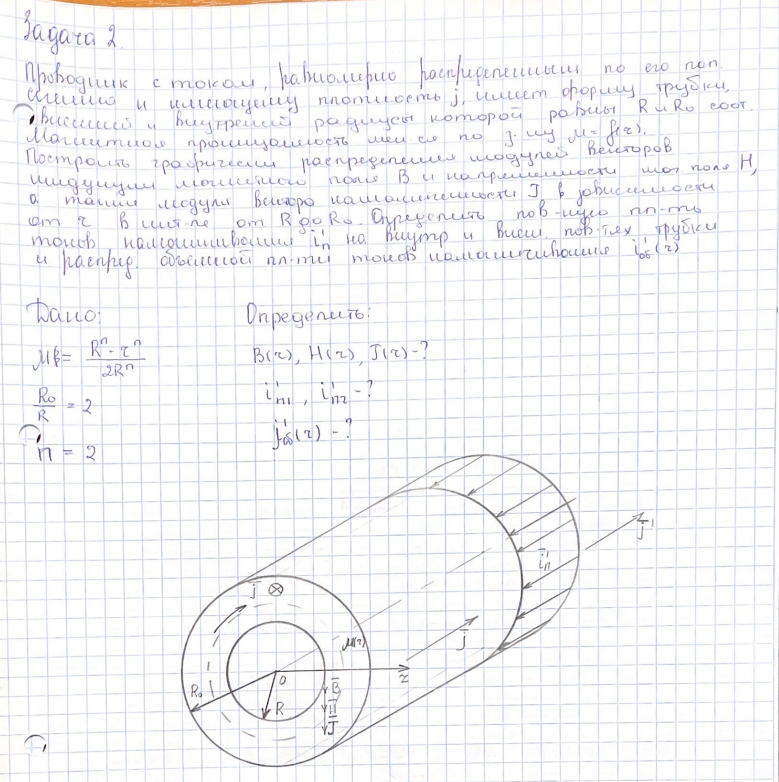 Задача 2.
Проводник с током, равномерно распределенным по его поп.
сечению и имеющему плотность j, имеет форму трубки,
внешний и внутрений радиусы которой равны R и R₀ соот.
Магнитная проницаемость мен ся по з-ну μ = f(r).
Построить графически распределения модулей векторов
индукции магнитного поля B и напряженности маг поля H,
а также модуля вектора намагниченности J в зависимости
от r в инт-ле от R до R₀. Определить пов-ную пл-ть
токов намагничивания i'п на внутр и внеш. пов-тях трубки
и распред. объемной пл-ти токов намагничивания i'об(r)
Дано:
Определить:
μ = (Rⁿ - rⁿ)/(2Rⁿ)
B(r), H(r), J(r) - ?
R₀/R = 2
i'п1, i'п2 - ?
n = 2
j'об(r) - ?
j
i'п
j'
j
μ(r)
R₀
O
r
R
B
H
J